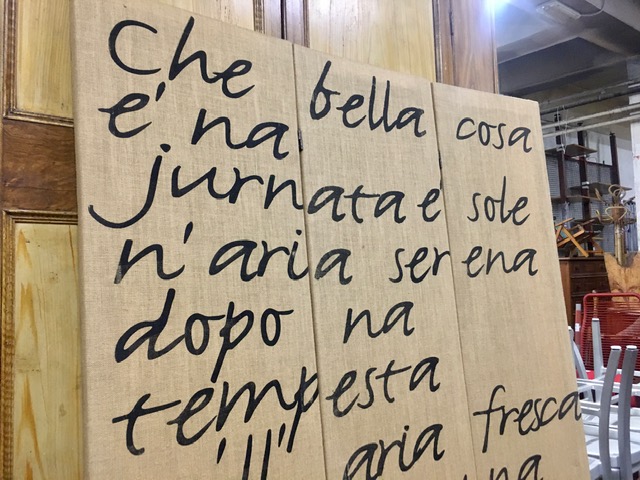 Che bella cosa
e' na
jurnata e sole
n'aria serena
dopo na
tempesta
'll' aria fresca
na